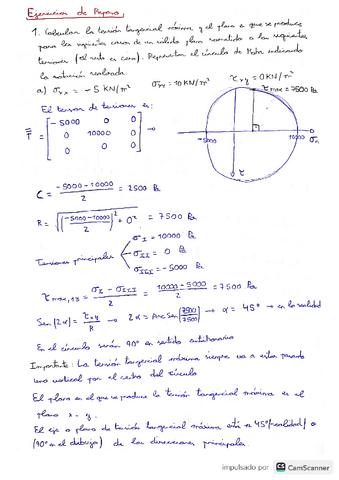 Ejercicios de Repaso,
1. Calcular la tensión tangencial máxima y el plano en que se produce
para los siguientes casos de un sólido plano sometido a las siguientes
tensiones (el resto es cero). Representar el círculo de Mohr indicando
la notación realizada.
a) σxx = -5 KN/m² σyy = 10 KN/m² τxy = 0 KN/m²
τmax = 7500 Pa
El tensor de tensiones es:
T = [ -5000 0 0
0 10000 0
0 0 0 ] →
-5000 10000 σn
τ
C = (-5000-10000)/2 = 2500 Pa
R = √(((-5000-10000)/2)² + 0²) = 7500 Pa
Tensiones principales
σI = 10000 Pa
σII = 0 Pa
σIII = -5000 Pa
τmax,13 = (σI - σIII)/2 = (10000-5000)/2 = 7500 Pa
Sen(2α) = τxy/R → 2α = Arc Sen(7500/7500) → α = 45° → en la realidad
En el círculo serán 90° en sentido antihorario
Importante: La tensión tangencial máxima siempre va a estar
una vertical por el centro del círculo
El plano en el que se produce la tensión tangencial máxima es el
plano x - y.
El eje o plano de tensión tangencial máxima está a 45° (realidad) o
(90° en el dibujo) de las direcciones principales
impulsado por CS CamScanner